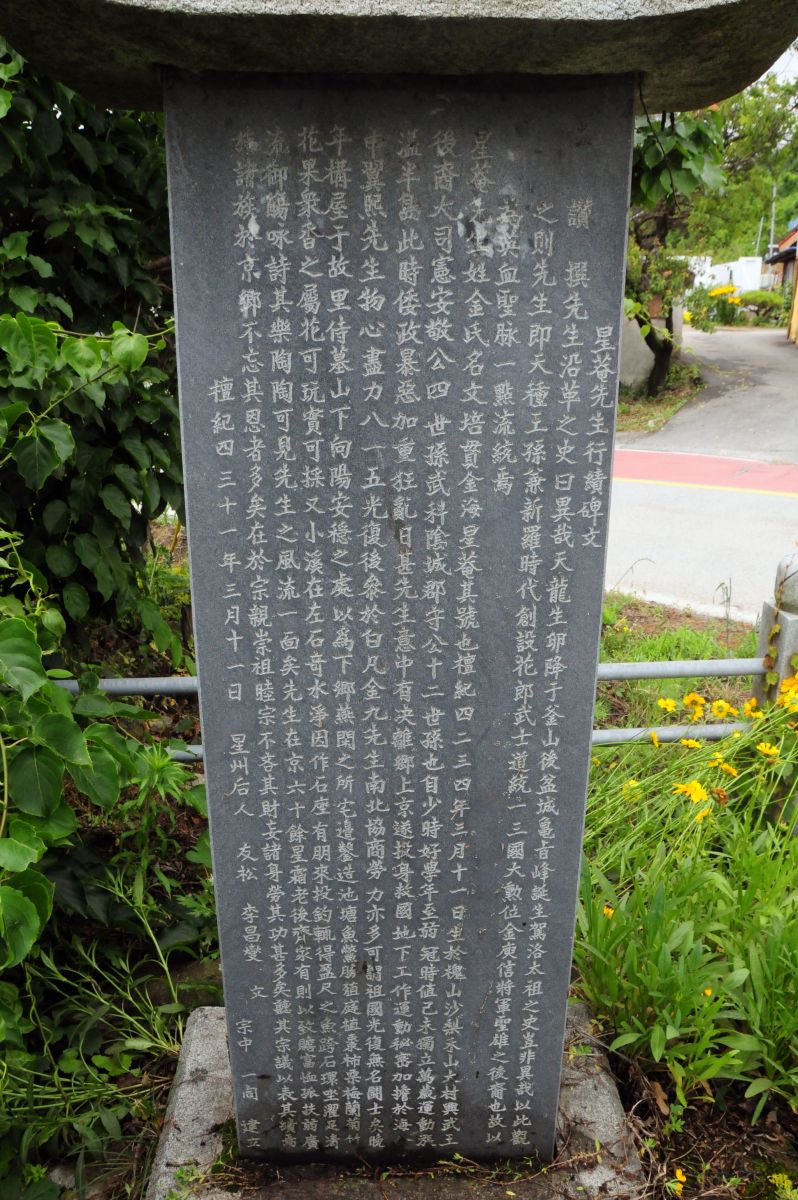 星菴先生行績碑文
讚 撰先生沿革之史曰異哉天龍生卵降于釜山後盆城龜旨峰誕生駕洛太祖之史豈非異哉以此觀
之則先生即天種王孫兼新羅時代創設花郎武士道統一三國大勲位金庾信將軍聖雄之後裔也故以
為英血聖脉一點流統焉
星菴先生姓金氏名文培貫金海星菴其號也檀紀四二三四年三月十一日生於槐山沙梨禾山大村興武王
後裔大司憲安敬公四世孫武科陰城郡守公十二世孫也自少時好學年至弱冠時值己未獨立萬歲運動
此時倭政暴惡加重狂亂日甚先生意中有決離鄉上京遂投身救國地下工作運動秘密加擔於海
申翼熙先生物心盡力八一五光復後參於白凡金九先生南北協商勞力亦多可謂祖國光復無名鬪士矣晚
年構屋于故里侍墓山下向陽安穩之處以爲下鄉燕閑之所宅邊鑿造池塘魚鱉勝殖庭植棗柿栗梅蘭菊竹
花果衆香之屬花可玩實可採又小溪在左石奇水淨因作石座有朋來投釣輒得盈尺之魚跨石環坐濯足淸
流御觴咏詩其樂陶陶可見先生之風流一面矣先生在京六十餘星霜老後齊家有則以致贍富恤振扶窮廣
諸族於京鄉不忘其恩者多矣在於宗親崇祖睦宗不吝其財忘諸身勞其功甚多矣聽其宗議以表其績焉
檀紀四三十一年三月十一日 星州后人 友松 李昌燮 文 宗中 一同 建立